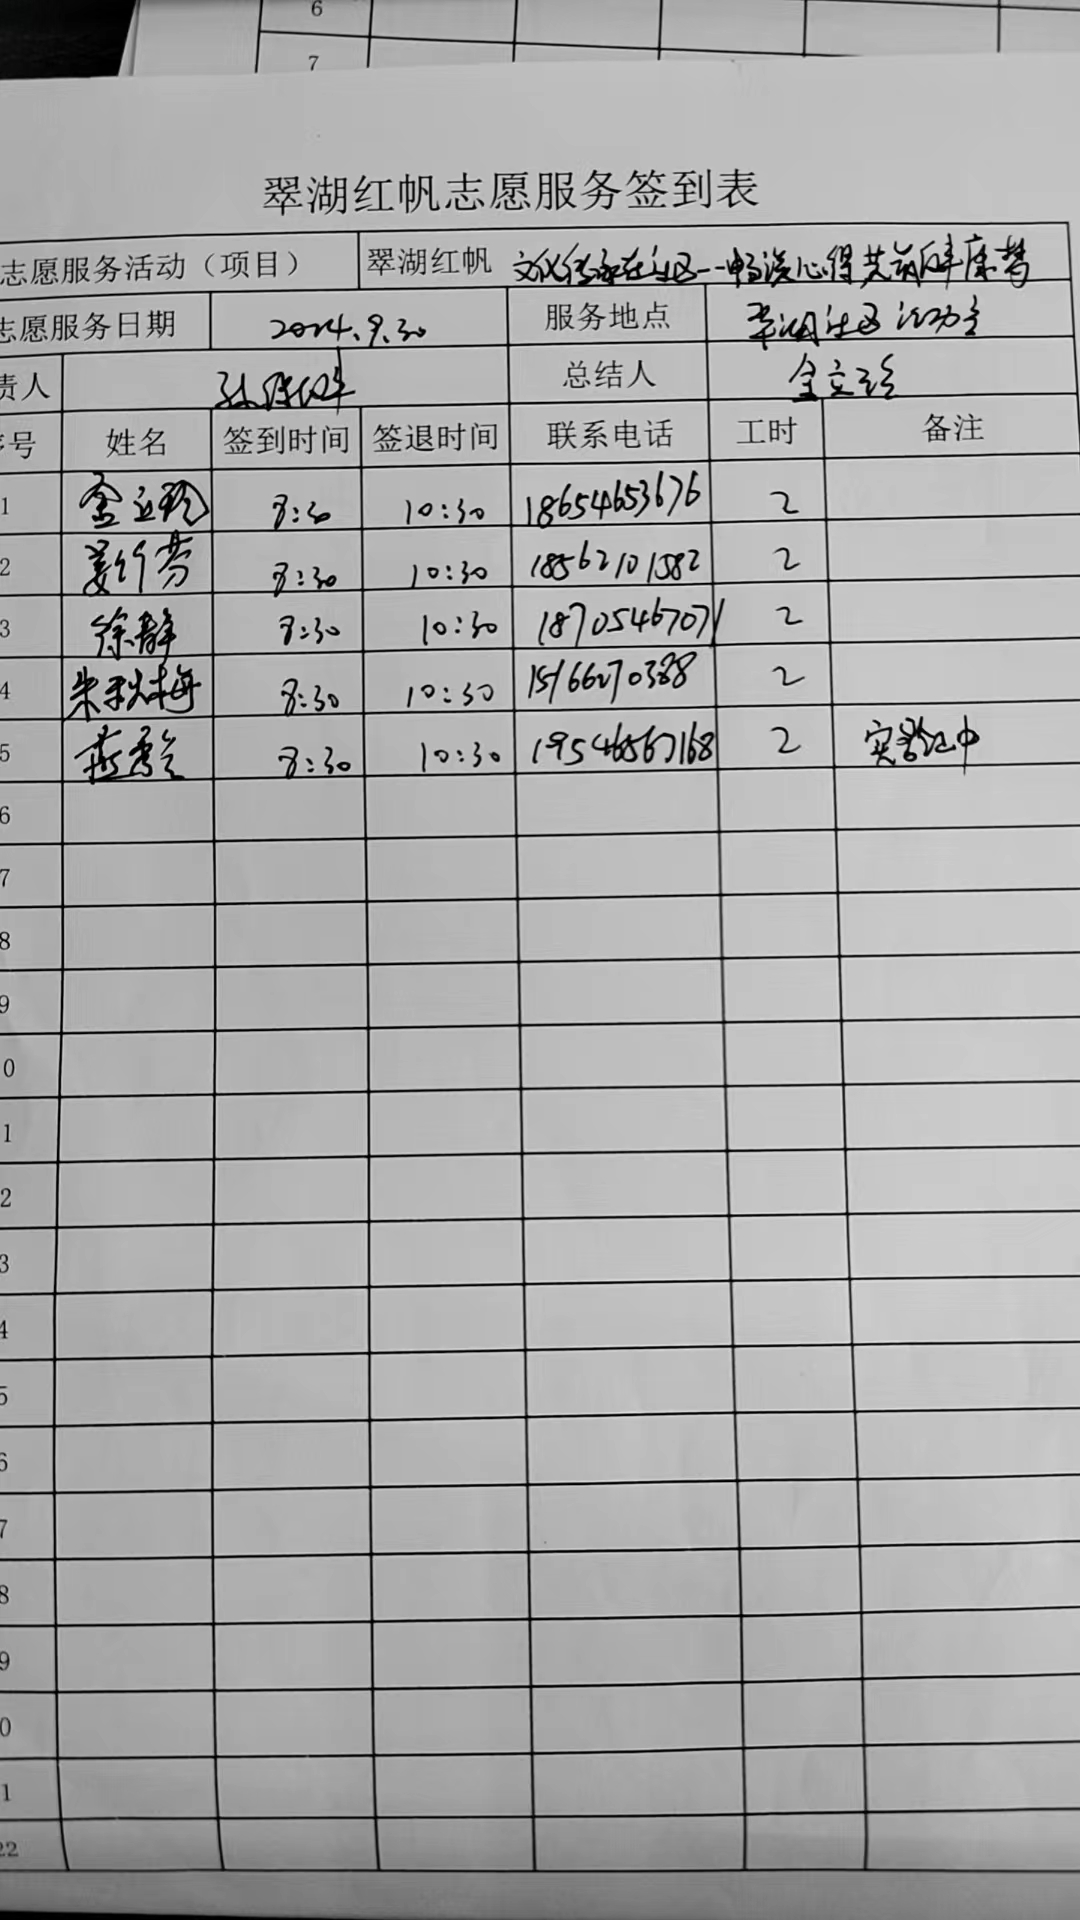 6
7
翠湖红帆志愿服务签到表
志愿服务活动（项目） 翠湖红帆 文化传承在社区--畅谈心得共筑健康梦
志愿服务日期 2024.9.30 服务地点 翠湖社区活动室
责人 总结人 金立玲
序号 姓名 签到时间 签退时间 联系电话 工时 备注
1 8:30 10:30 18654653676 2
2 姜竹芬 8:30 10:30 18562101582 2
3 徐静 8:30 10:30 18705467071 2
4 朱秋梅 8:30 10:30 15166270388 2
5 8:30 10:30 19546567168 2 实验中
6
7
8
9
0
1
2
3
4
5
6
7
8
9
0
1
22